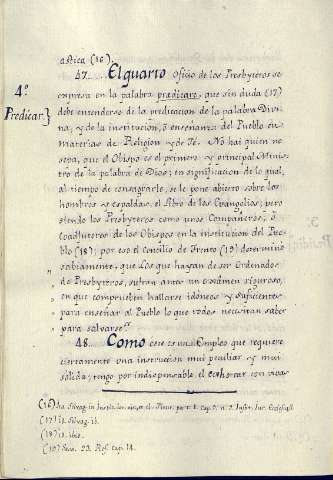 astica (16).
47. El quarto Oficio de los Presbyteros se
expresa en la palabra predicare, que sin duda (17)
debe entenderse de la predicacion de la palabra Divi-
na, y de la institucion, ò enseñanza del Pueblo en
materias de Religion y de Fé. No hai quien no
sepa, que el Obispo es el primero y principal Minis-
tro de la palabra de Dios; en significacion de lo qual,
al tiempo de consagrarle, se le pone abierto sobre los
hombros y espaldas, el libro de los Evangelios; pero
siendo los Presbyteros como unos Compañeros, ò
Coadjutores de los Obispos en la institucion del Pue-
blo (18); por eso el Concilio de Trento (19) determinò
sabiamente, que Los que hayan de ser Ordenados
de Presbyteros, sufran antes un exàmen riguroso,
en que comprueben hallarse idoneos y suficientes
para enseñar al Pueblo lo que todos necesitan saber
para salvarse.
48. Como este es un Empleo que requiere
ciertamente una instruccion mui peculiar y mui
sólida, tengo por indispensable, el exhortar con vivas
4º
Predicar}
(16) Selvag. in
(17) id. Selvag. ib.
(18) id. ibid.
(19) Sess. 23. Ref. cap. 14.